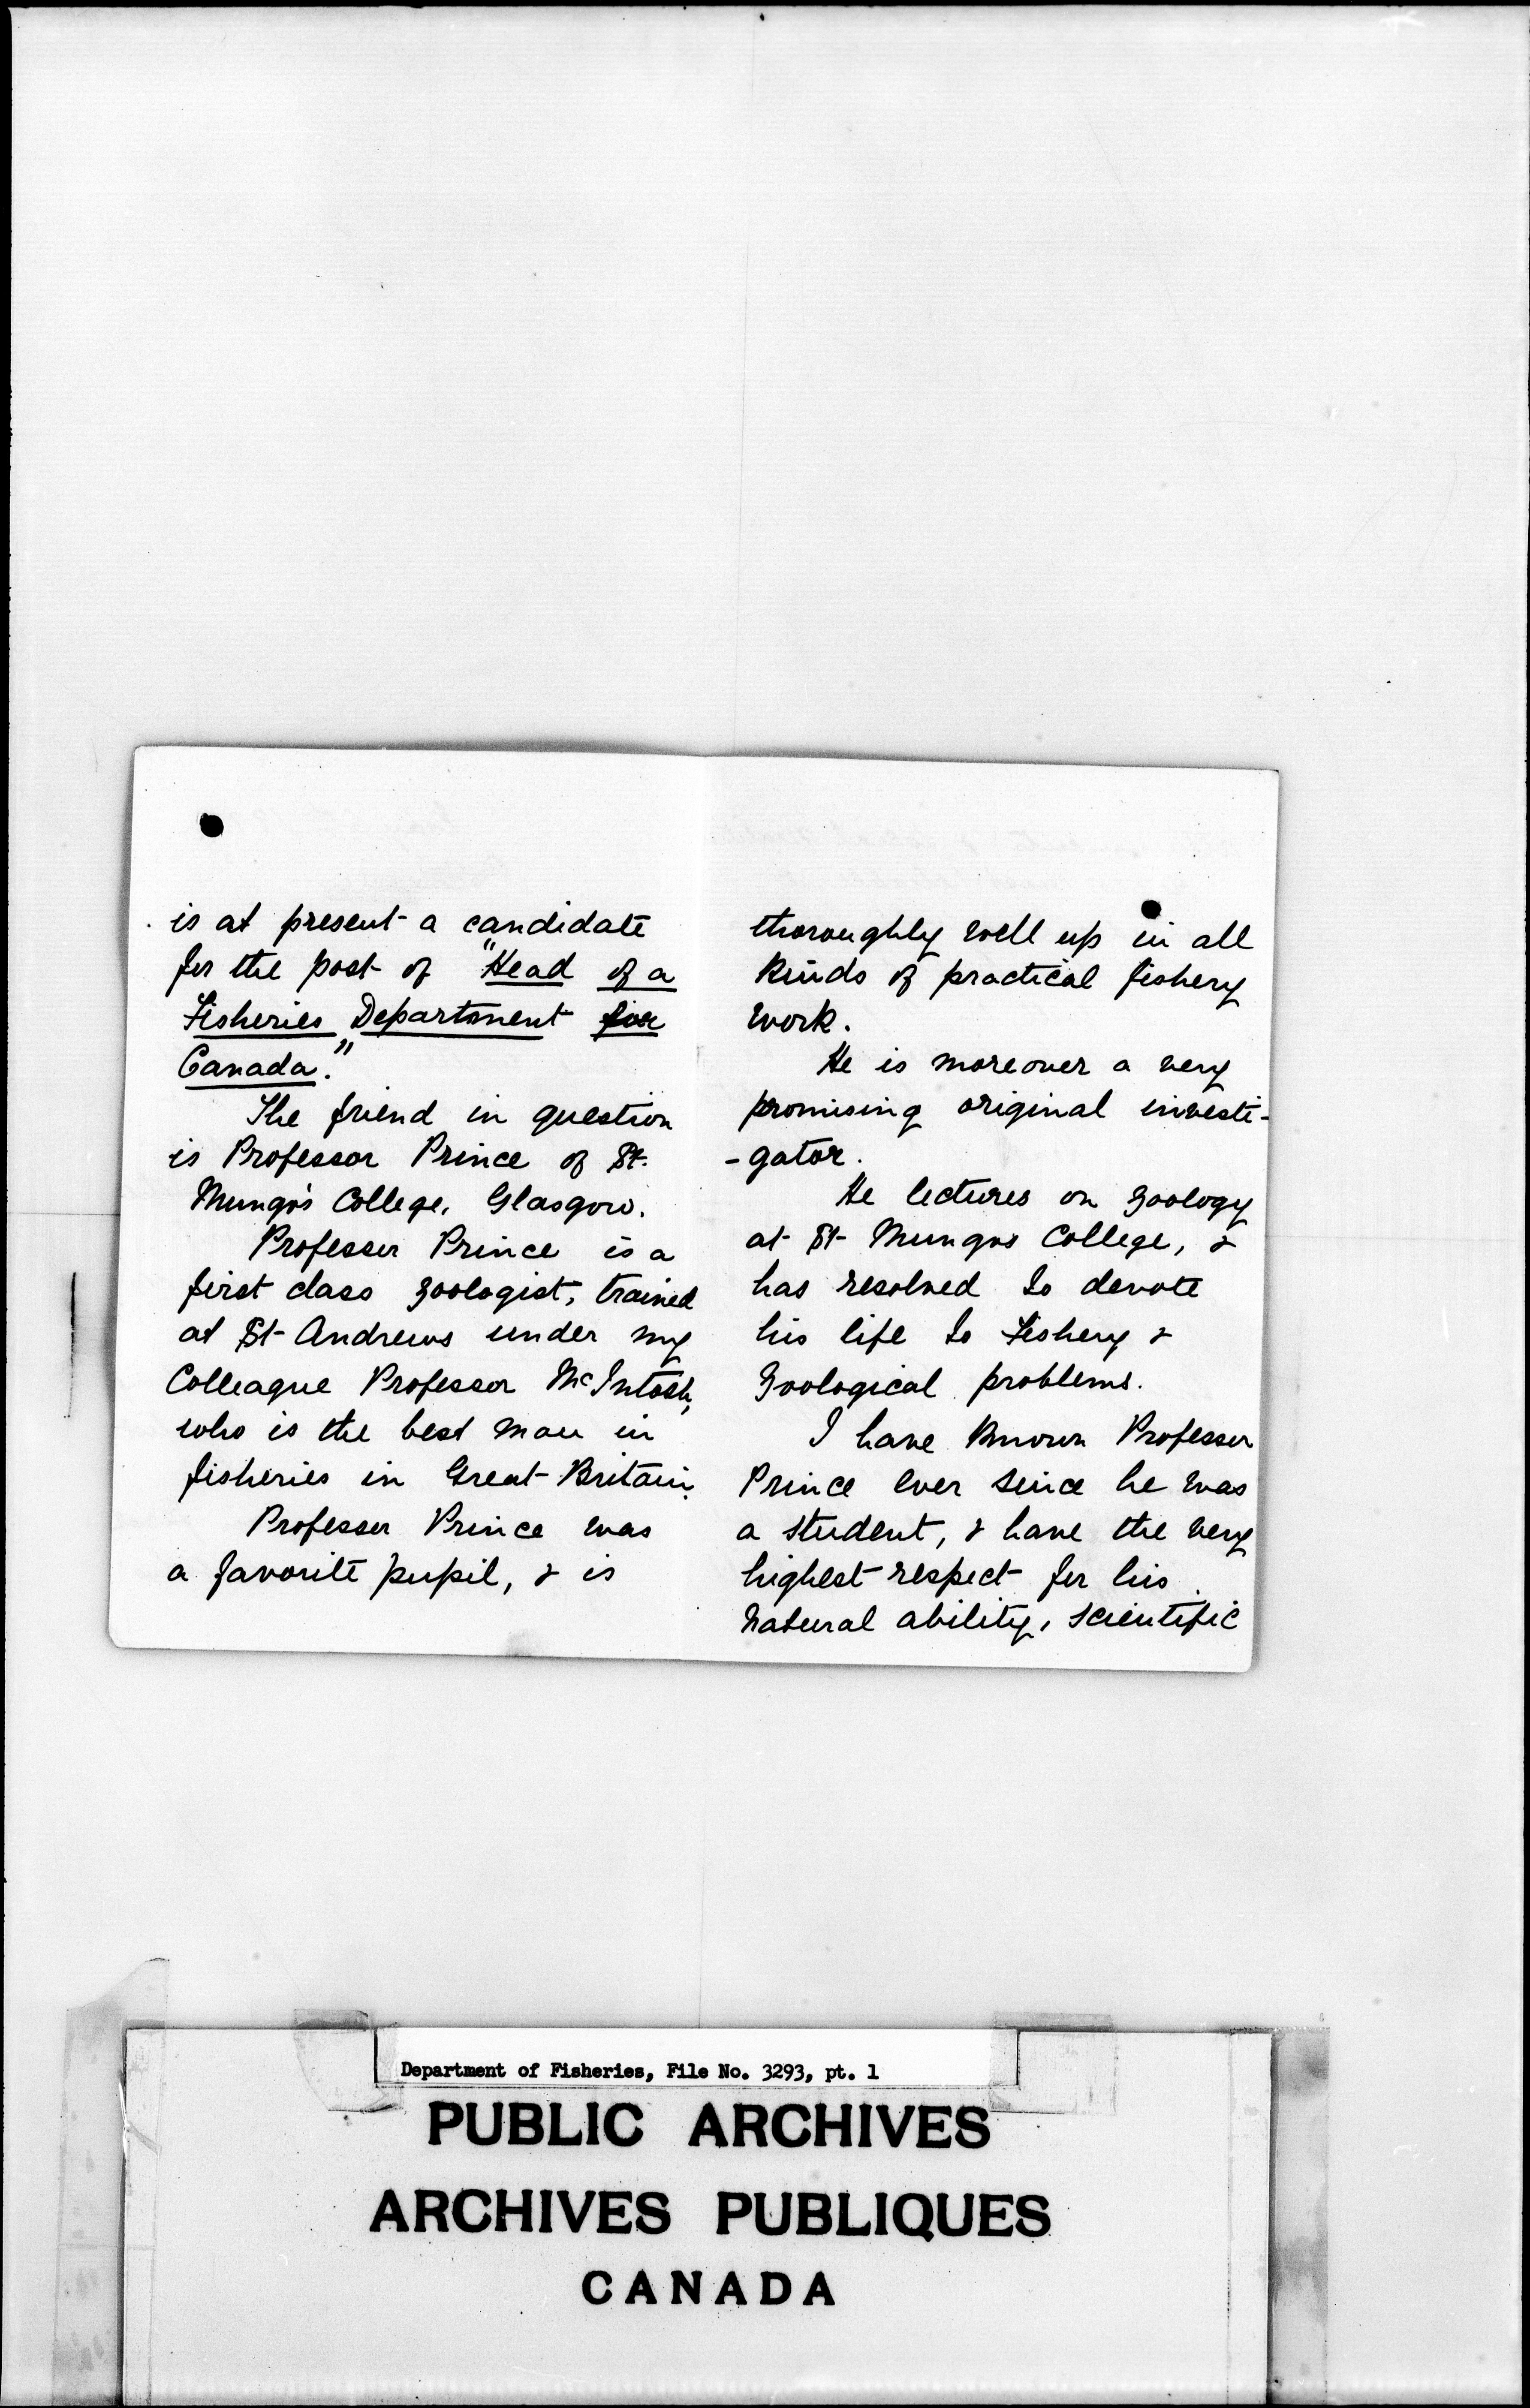 is at present a candidate
for the post of "Head of a
Fisheries Department for
Canada."
The friend in question
is Professor Prince of St.
Mungo's College, Glasgow.
Professor Prince is a
first class zoologist, trained
at St Andrews under my
Colleague Professor McIntosh,
who is the best man in
fisheries in Great Britain.
Professor Prince was
a favorite pupil, & is
thoroughly well up in all
kinds of practical fishery
work.
He is moreover a very
promising original investi-
-gator.
He lectures on zoology
at St Mungos College, &
has resolved to devote
his life to Fishery &
Zoological problems.
I have known Professor
Prince ever since he was
a student, & have the very
highest respect for his
natural ability, scientific
Department of Fisheries, File No. 3293, pt. 1
PUBLIC ARCHIVES
ARCHIVES PUBLIQUES
CANADA